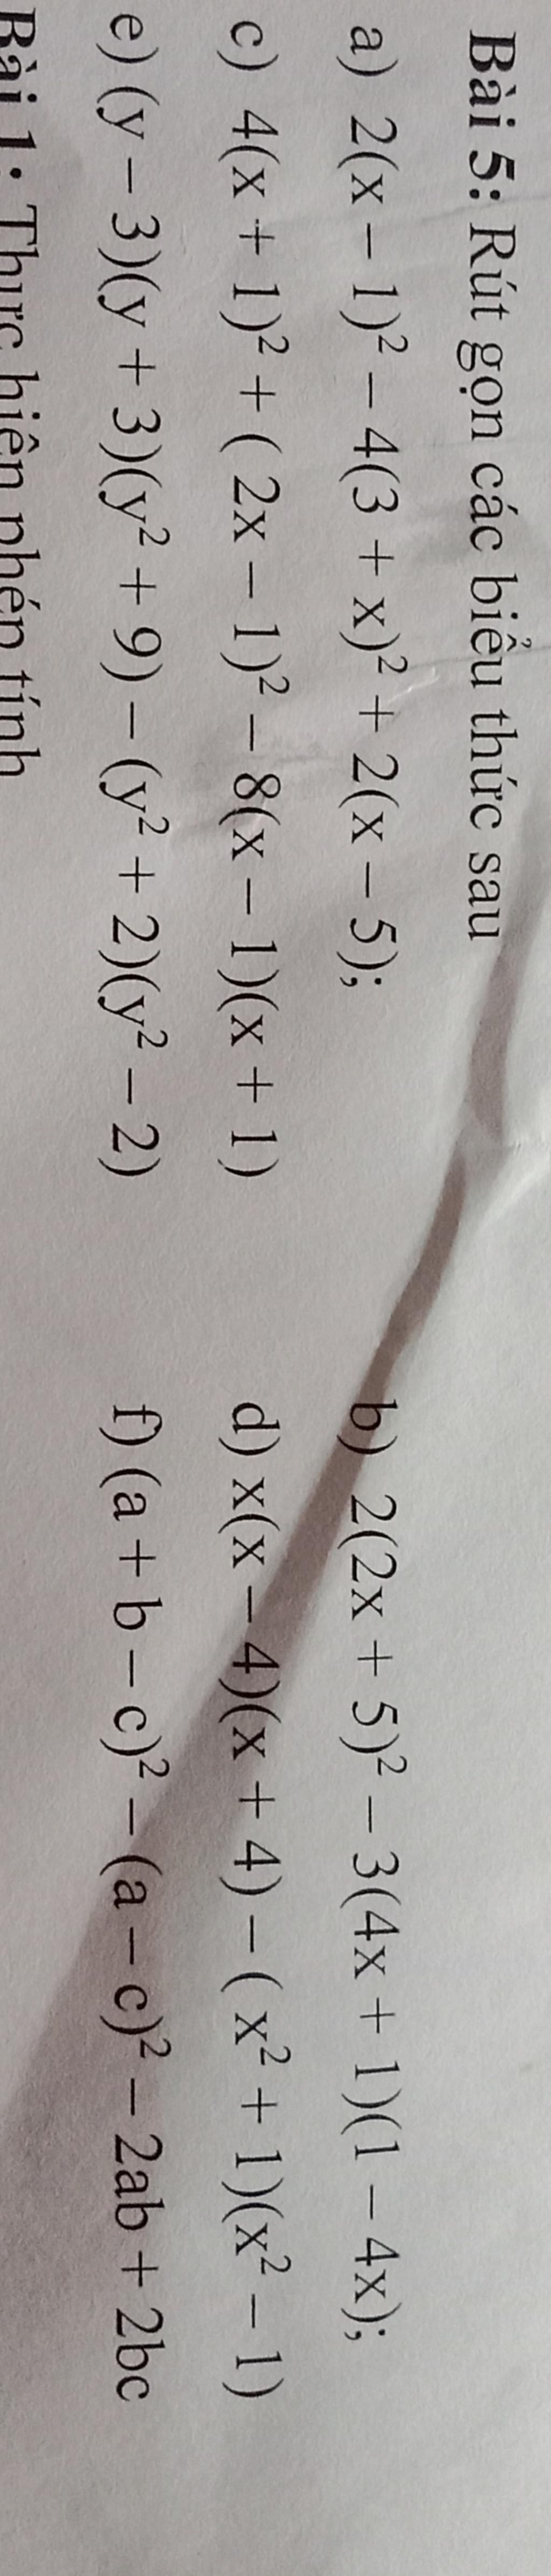 Bài 5: Rút gọn các biểu thức sau
a) 2(x – 1)² – 4(3 + x)² + 2(x – 5); b) 2(2x + 5)² – 3(4x + 1)(1 – 4x);
c) 4(x + 1)² + ( 2x – 1)² – 8(x – 1)(x + 1) d) x(x – 4)(x + 4) – ( x² + 1)(x² – 1)
e) (y – 3)(y + 3)(y² + 9) – (y² + 2)(y² – 2) f) (a + b – c)² – (a – c)² – 2ab + 2bc
Bài 1: Thực hiện phép tính